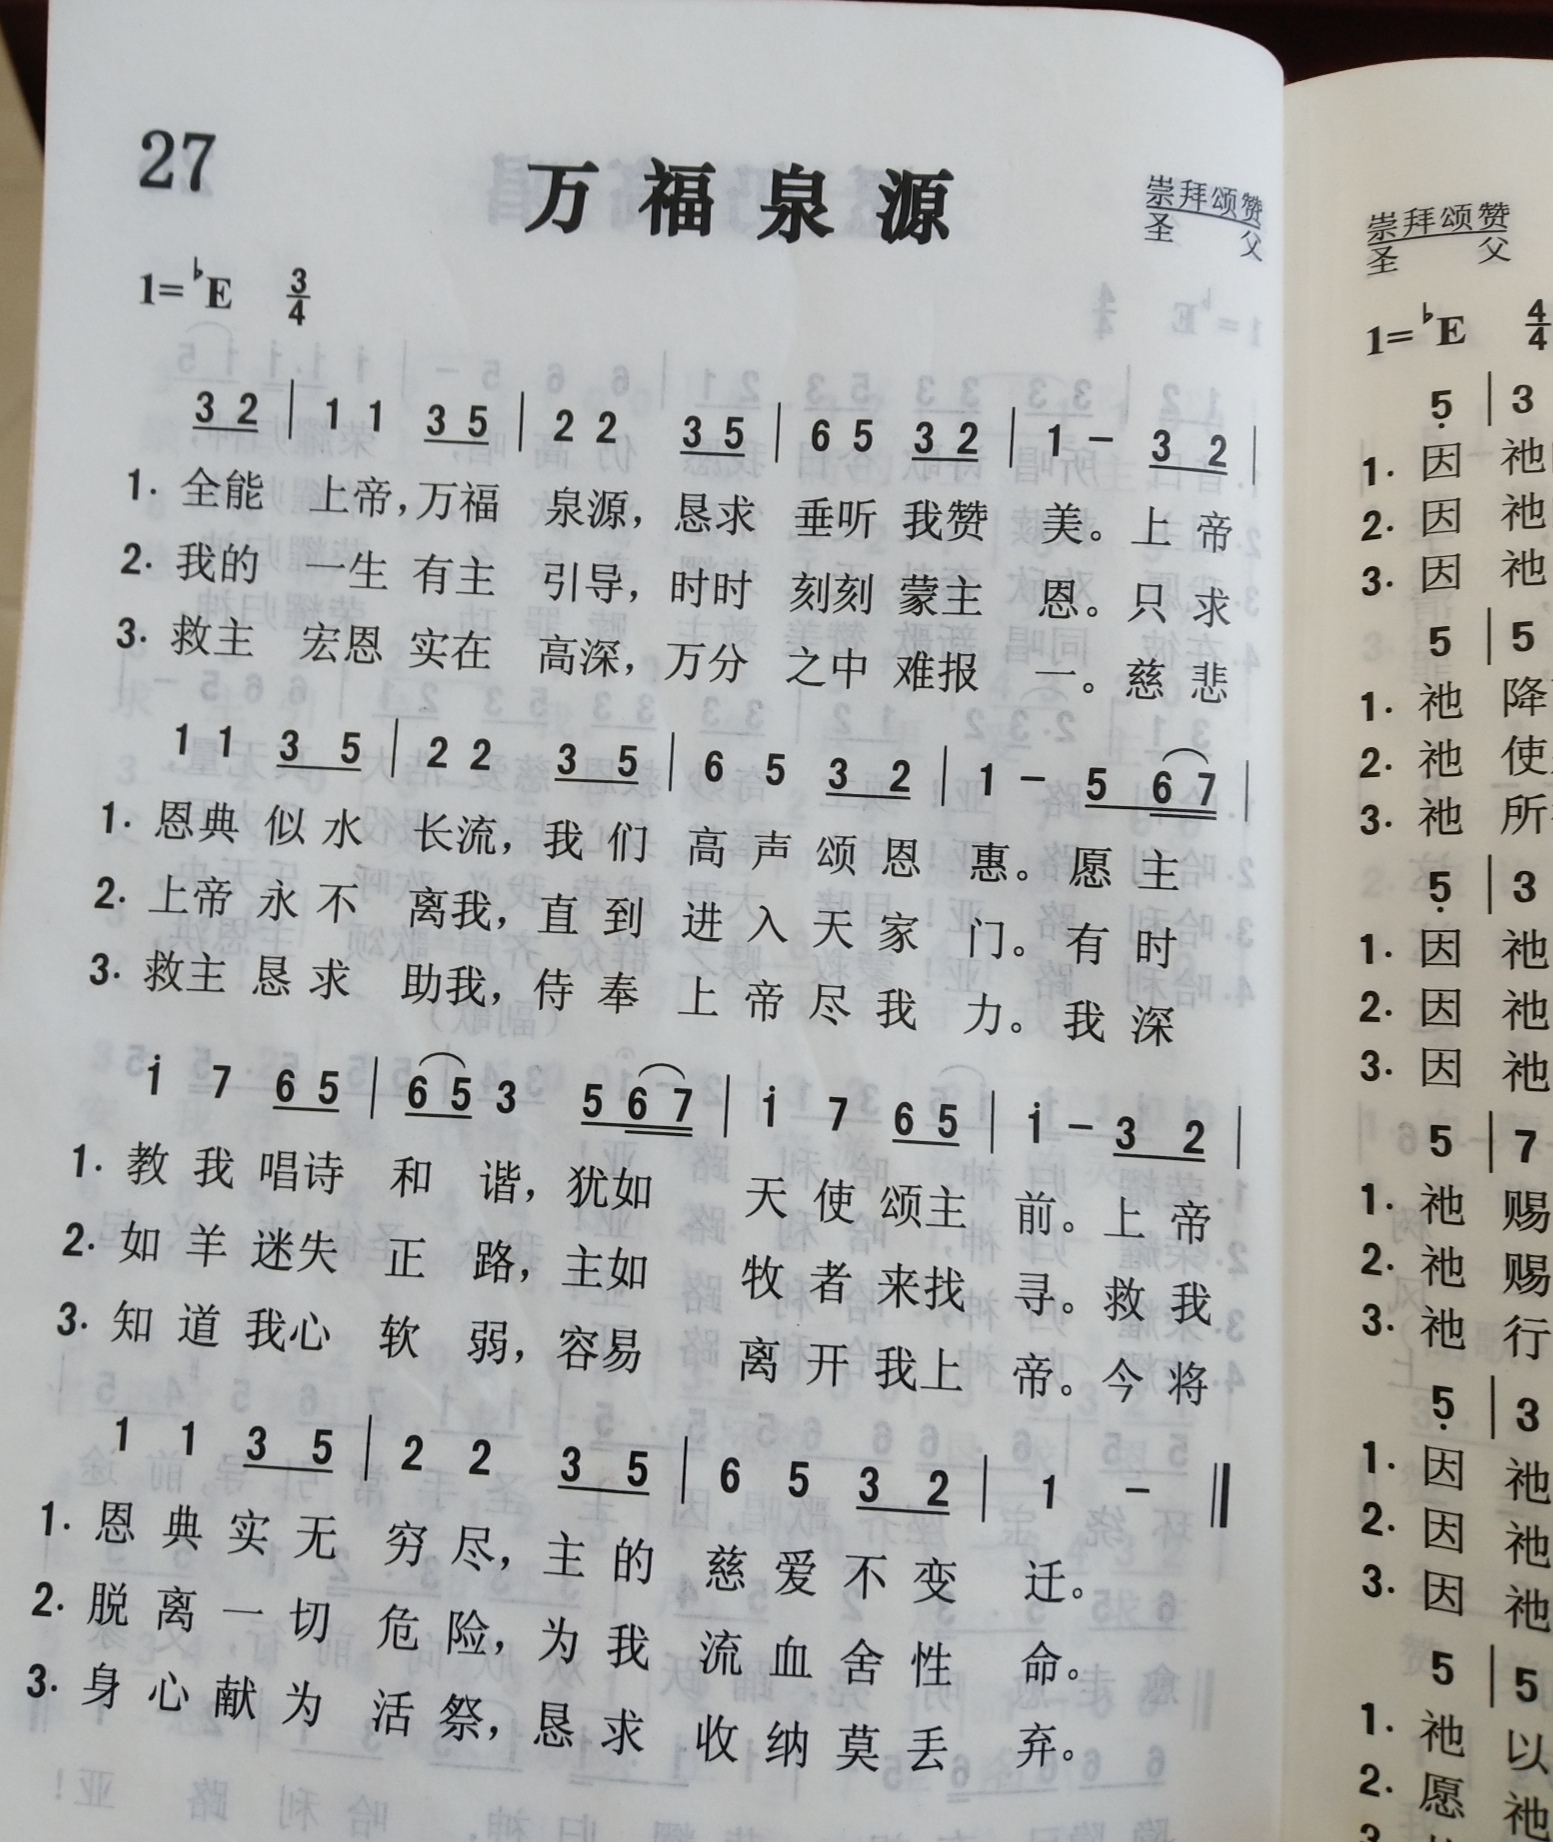 27
万福泉源
崇拜颂赞
圣 父
1=♭E 3/4
3 2 | 1 1 3 5 | 2 2 3 5 | 6 5 3 2 | 1 - 3 2 |
1. 全能 上帝，万福 泉源，恳求 垂听 我赞 美。上 帝
2. 我的 一生 有主 引导，时时 刻刻 蒙主 恩。只 求
3. 救主 宏恩 实在 高深，万分 之中 难报 一。慈 悲
1 1 3 5 | 2 2 3 5 | 6 5 3 2 | 1 - 5 6 7 |
1. 恩典 似水 长流，我们 高声颂恩 惠。愿 主
2. 上帝 永不 离我，直到 进入天家 门。有 时
3. 救主 恳求 助我，侍奉 上帝尽我 力。我 深
i 7 6 5 | 6 5 3 5 6 7 | i 7 6 5 | i - 3 2 |
1. 教我唱诗 和 谐，犹如 天使颂主 前。上 帝
2. 如羊迷失 正 路，主如 牧者来找 寻。救 我
3. 知道我心 软 弱，容易 离开我上 帝。今 将
1 1 3 5 | 2 2 3 5 | 6 5 3 2 | 1 - ‖
1. 恩典实无 穷尽，主的 慈爱不变 迁。
2. 脱离一切 危险，为我 流血舍性 命。
3. 身心献为 活祭，恳求 收纳莫丢 弃。
崇拜颂赞
圣 父
1=♭E 4/4
5 | 3
1. 因 祂
2. 因 祂
3. 因 祂
5 | 5
1. 祂 降
2. 祂 使
3. 祂 所
5 | 3
1. 因 祂
2. 因 祂
3. 因 祂
5 | 7
1. 祂 赐
2. 祂 赐
3. 祂 行
5 | 3
1. 因 祂
2. 因 祂
3. 因 祂
5 | 5
1. 祂 以
2. 愿 祂